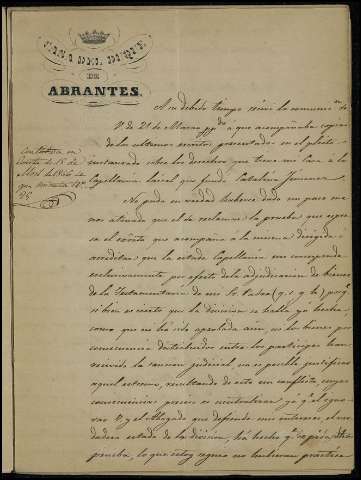 CASA DEL DUQUE
DE
ABRANTES.
A su debido tiempo recibí la comunicⁿ. de
V. de 21 de Marzo pp.do a que acompañaba copia
de los ultimos escritos presentados en el pleito
instaurado sobre los derechos que tiene mi Casa á la
Capellanía laical que fundó Catalina Jimenez.
Contestada en
Carta de 15 de
que
No pudo en verdad haberse dado un paso me
nos atinado que el de reclamar la prueba que espre
sa el escrito que acompaña a la misma dirigida á
acreditar que la citada Capellanía me corresponde
esclusivamente por efecto de la adjudicacion de bienes
de la Testamentaria de mi Sr. Padre (q. s. g. h.) porqᵉ.
si bien es cierto que la division se halla ya hecha,
como que no há sido aprobada aun, ni los bienes por
consecuencia distribuidos entre los participes han
recibido la sancion judicial, no es posible justificar
aquel estremo, resultando de esto un conflicto cuyas
consecuencias preciso es neutralizar ya qᵉ. el igno-
rar V. y el Abogado que defiende mis intereses el ver
dadero estado de la division, há hecho qᵉ. se pida
prueba, lo que estoy seguro no hubieran practica